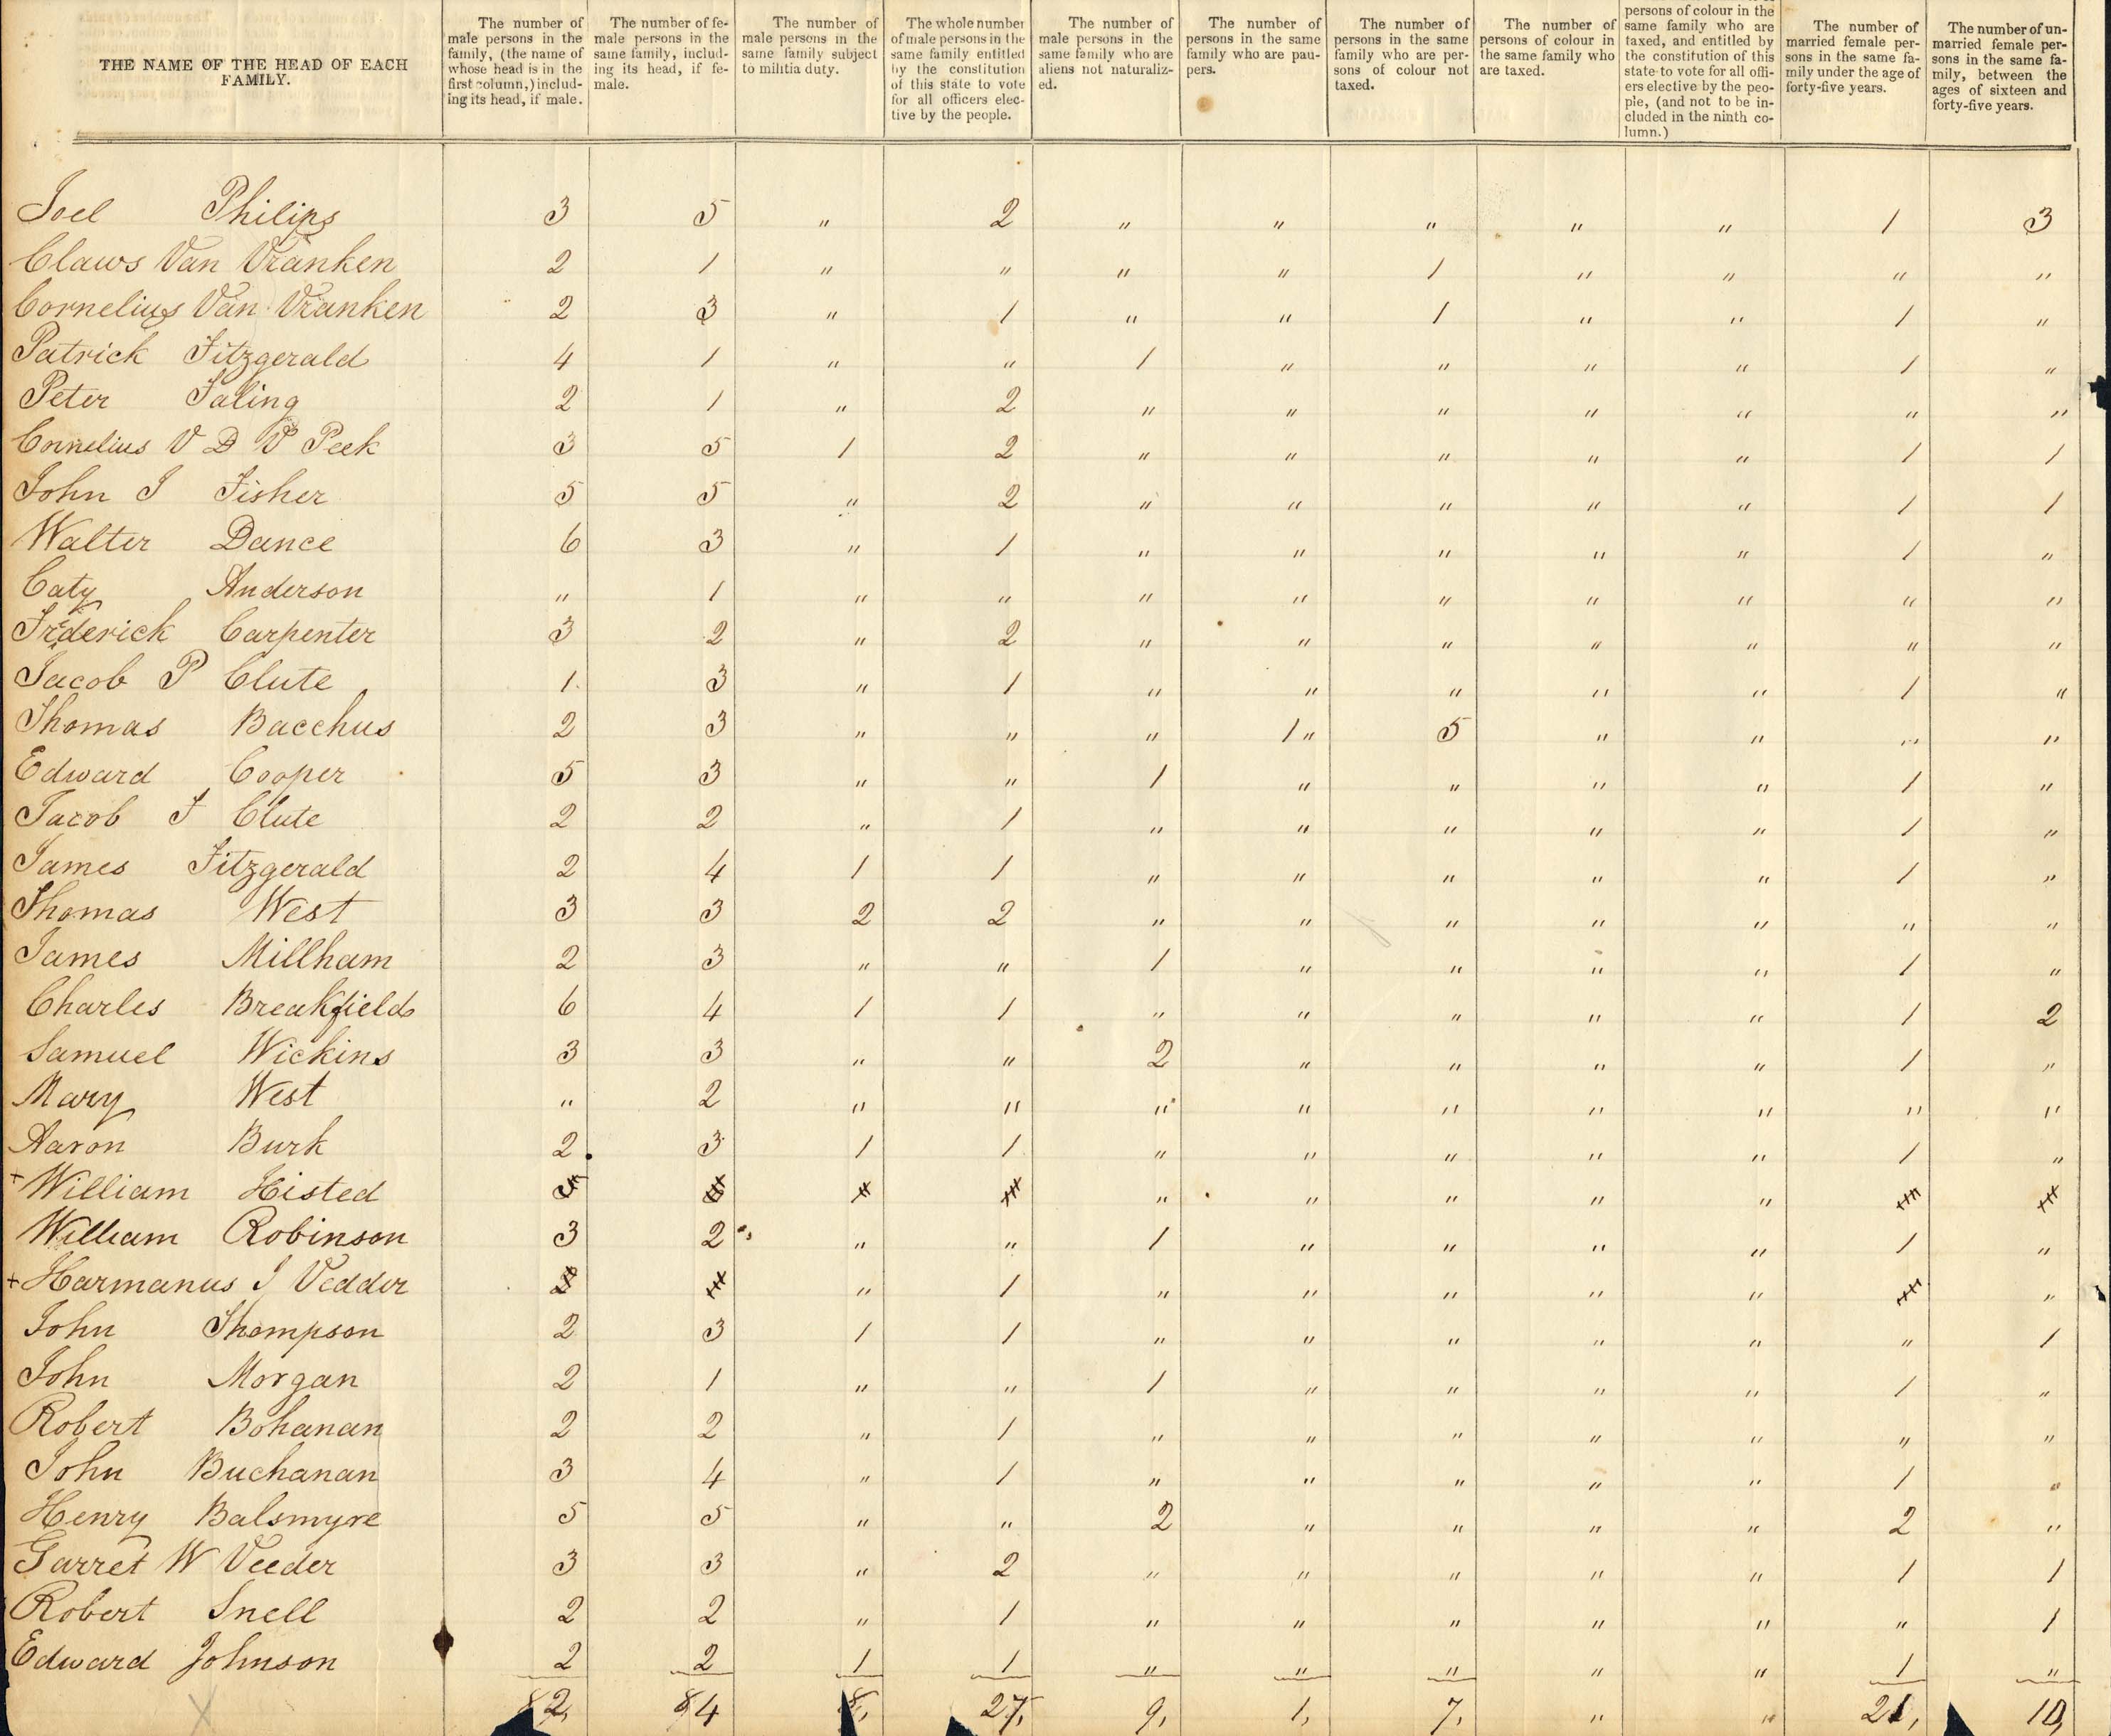 THE NAME OF THE HEAD OF EACH FAMILY.
The number of male persons in the family, (the name of whose head is in the first column,) including its head, if male.
The number of female persons in the same family, including its head, if female.
The number of male persons in the same family subject to militia duty.
The whole number of male persons in the same family entitled by the constitution of this state to vote for all officers elective by the people.
The number of male persons in the same family who are aliens not naturalized.
The number of persons in the same family who are paupers.
The number of persons in the same family who are persons of colour not taxed.
The number of persons of colour in the same family who are taxed.
persons of colour in the same family who are taxed, and entitled by the constitution of this state to vote for all officers elective by the people, (and not to be included in the ninth column.)
The number of married female persons in the same family under the age of forty-five years.
The number of unmarried female persons in the same family, between the ages of sixteen and forty-five years.
Joel Philips 3 5 " 2 " " " " " 1 3
Claws Van Vranken 2 1 " " " " 1 " " " "
Cornelius Van Vranken 2 3 " 1 " " 1 " " 1 "
Patrick Fitzgerald 4 1 " " 1 " " " " 1 "
Peter Faling 2 1 " 2 " " " " " " "
Cornelius V D V Peek 3 5 1 2 " " " " " 1 1
John J Fisher 5 5 " 2 " " " " " 1 1
Walter Dance 6 3 " 1 " " " " " 1 "
Caty Anderson " 1 " " " " " " " " "
Frederick Carpenter 3 2 " 2 " " " " " " "
Jacob P Clute 1 3 " 1 " " " " " 1 "
Thomas Bacchus 2 3 " " " 1 " 5 " " " "
Edward Cooper 5 3 " " 1 " " " " 1 "
Jacob J Clute 2 2 " 1 " " " " " 1 "
James Fitzgerald 2 4 1 1 " " " " " 1 "
Thomas West 3 3 2 2 " " " " " " "
James Millham 2 3 " " 1 " " " " 1 "
Charles Breakfield 6 4 1 1 " " " " " 1 2
Samuel Wickins 3 3 " " 2 " " " " 1 "
Mary West " 2 " " " " " " " " "
Aaron Burk 2 3 1 1 " " " " " 1 "
+ William Histed " " " " "
William Robinson 3 2 " " 1 " " " " 1 "
+ Harmanus J Vedder " 1 " " " " " "
John Thompson 2 3 1 1 " " " " " " 1
John Morgan 2 1 " " 1 " " " " 1 "
Robert Bohanan 2 2 " 1 " " " " " " "
John Buchanan 3 4 " 1 " " " " " 1 "
Henry Balsmyre 5 5 " " 2 " " " " 2 "
Garret W Veeder 3 3 " 2 " " " " " 1 1
Robert Snell 2 2 " 1 " " " " " " 1
Edward Johnson 2 2 1 1 " " " " " 1 "
82, 84 8, 27, 9, 1, 7, " " 21, 10,